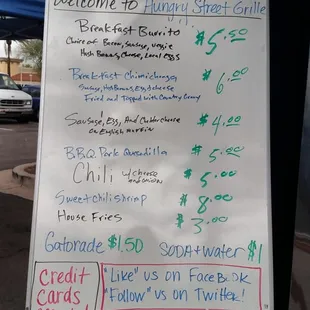 Welcome to Hungry Street Grille
Breakfast Burrito $5.50
Choice of Bacon, Sausage, Veggie
Hash Browns, Cheese, Local Eggs
Breakfast Chimichanga $6.00
Sausage, Hash Browns, Egg & cheese
Fried and Topped with Country Gravy
Sausage, Egg, And Cheddar cheese $4.00
on English muffin
BBQ Pork Quesadilla $5.00
Chili w/cheese and onion $5.00
Sweet chili shrimp $8.00
House Fries $3.00
Gatorade $1.50 SODA + water $1
Credit
Cards
"Like" us on FaceBOOK
"Follow" us on Twitter!